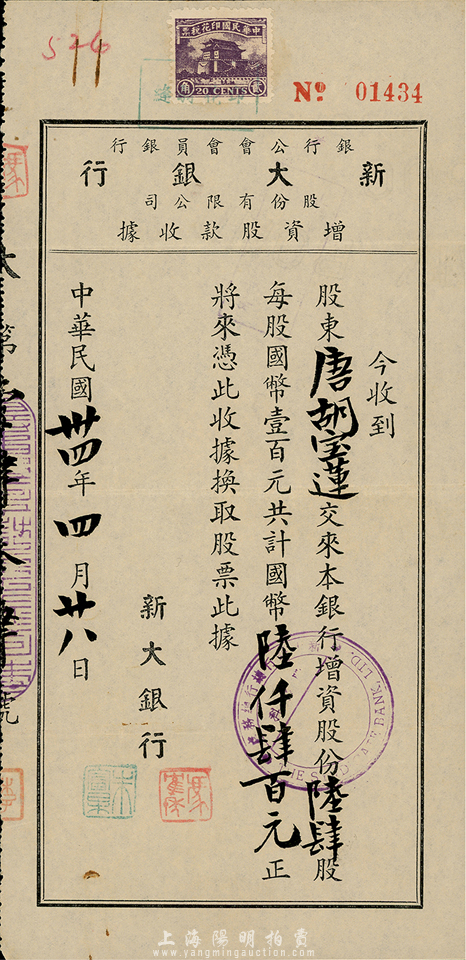 526
中華民國印花稅票
貳角
20 CENTS
Nº 01434
銀行公會會員銀行
新大銀行
股份有限公司
增資股款收據
今收到
股東唐胡宝蓮交來本銀行增資股份陸肆股
每股國幣壹百元共計國幣陸仟肆百元正
將來憑此收據換取股票此據
新大銀行
中華民國卅四年四月廿八日
第
號
BANK, LTD.
上海陽明拍賣
www.yangmingauction.com